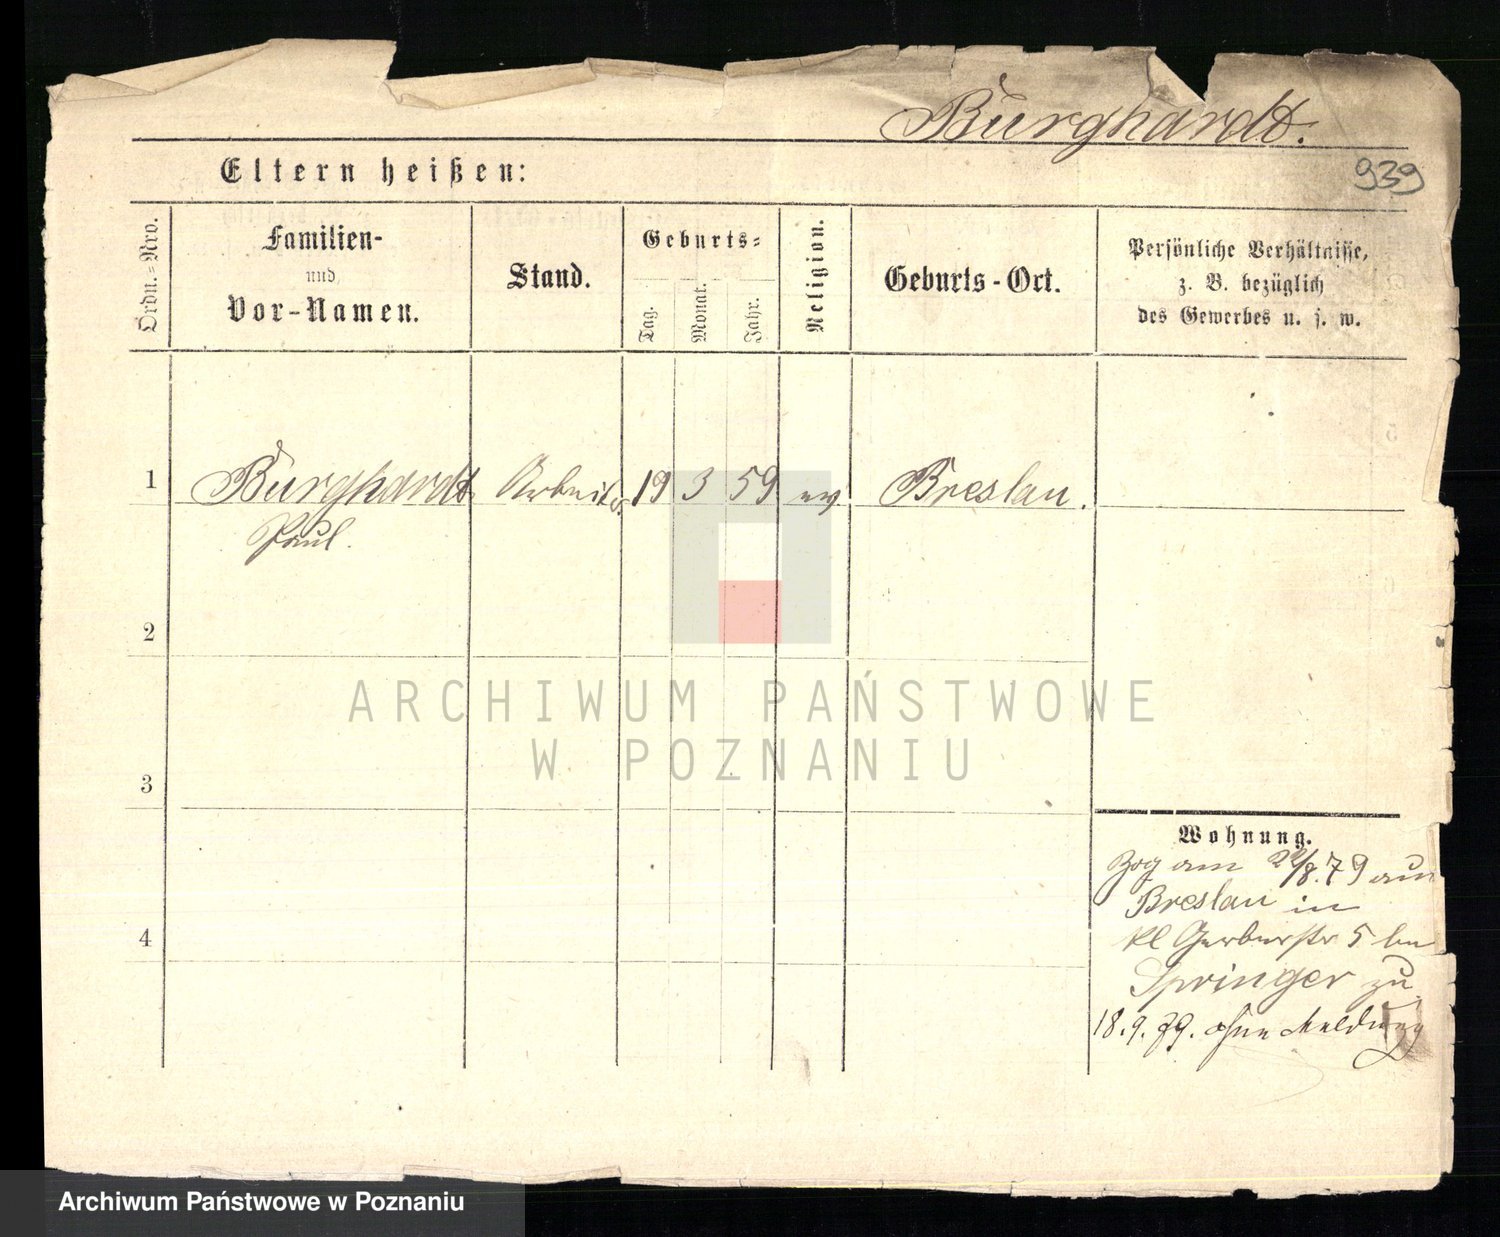 Burghardt.
939
Eltern heißen:
Ordn.=Nro.
Familien-
und
Vor-Namen.
Stand.
Geburts=
Tag.
Monat.
Jahr.
Religion.
Geburts-Ort.
Persönliche Verhältnisse,
z. B. bezüglich
des Gewerbes u. s. w.
1 Burghardt Arbeit 19 3 59 ev Breslau.
Paul.
2
3
4
ARCHIWUM PAŃSTWOWE
W POZNANIU
Wohnung.
Zog am /8.79 aus
Breslau in
kl Gerberstr 5 bei
Springer zu
18.9.79. ohne Meldung
Archiwum Państwowe w Poznaniu